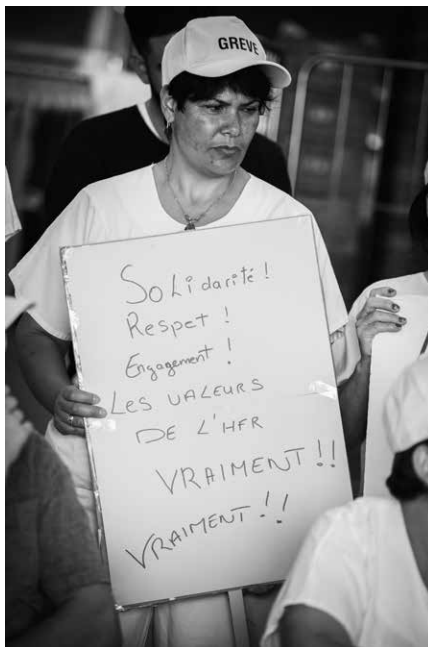 GREVE
SoLidarité !
Respet !
Engagement !
LES VALEURS
DE L'HFR
VRAIMENT !!
VRAIMENT !!